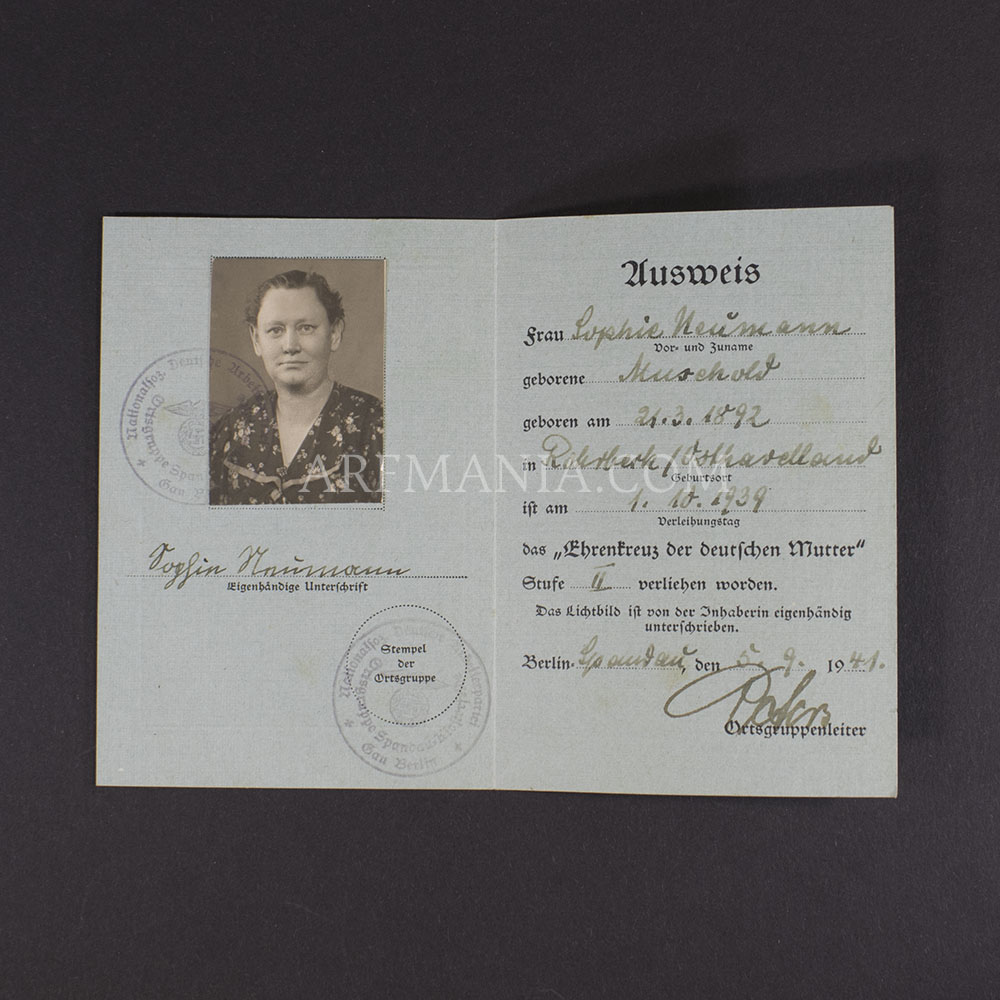 Nationalsoz. Deutsche Arbei
Ortsgruppe Spanda
Gau B
Sophie Neumann
Eigenhändige Unterschrift
Stempel
der
Ortsgruppe
Nationalsoz. Deutsche
erpartei
Ortsgruppe Spandau
Gau Berlin
Ausweis
Frau Sophie Neumann
Vor- und Zuname
geborene Muschold
geboren am 21.3.1892
in Rohrbeck/Osthavelland
Geburtsort
ist am 1.10.1939
Verleihungstag
das „Ehrenkreuz der deutschen Mutter“
Stufe II verliehen worden.
Das Lichtbild ist von der Inhaberin eigenhändig
unterschrieben.
Berlin-Spandau, den 5.9. 1941.
Ortsgruppenleiter
ARFMANIA.COM